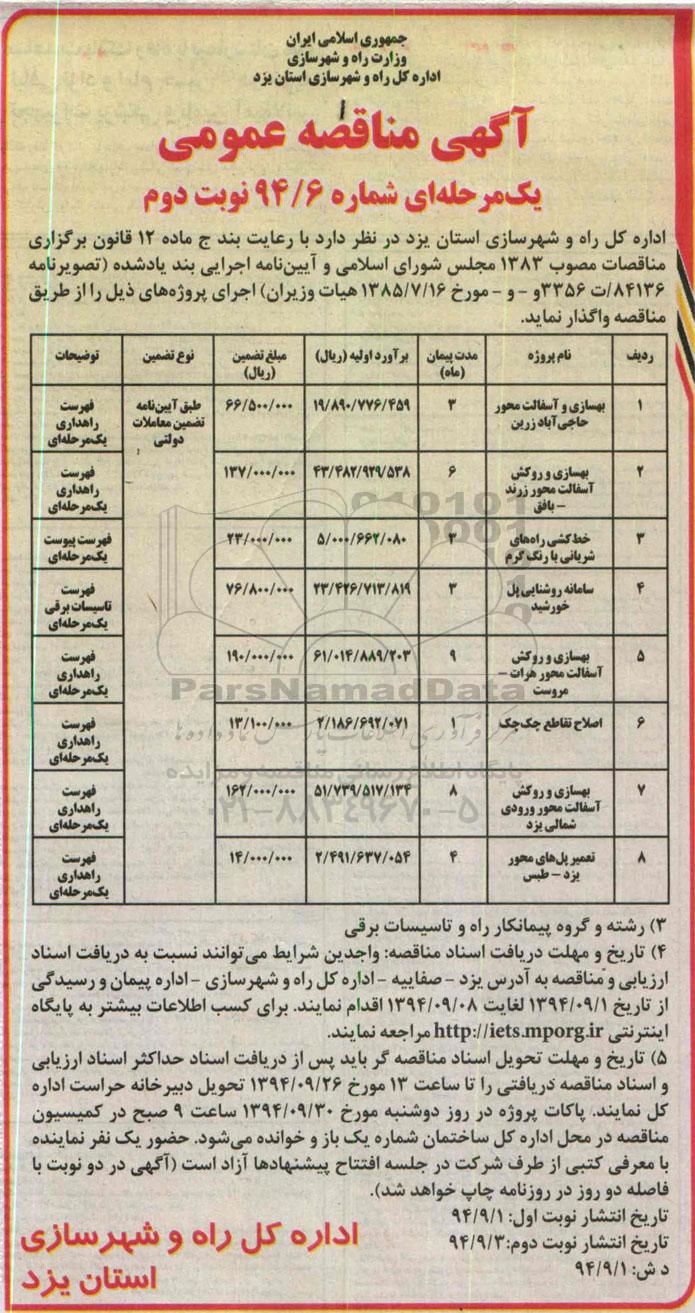 جمهوری اسلامی ایران
وزارت راه و شهرسازی
اداره کل راه و شهرسازی استان یزد
آگهی مناقصه عمومی
یک‌مرحله‌ای شماره ۹۴/۶ نوبت دوم
اداره کل راه و شهرسازی استان یزد در نظر دارد با رعایت بند ج ماده ۱۲ قانون برگزاری
مناقصات مصوب ۱۳۸۳ مجلس شورای اسلامی و آیین‌نامه اجرایی بند یادشده (تصویرنامه
۸۴۱۳۶/ت ۳۳۵۶و - و - مورخ ۱۳۸۵/۷/۱۶ هیات وزیران) اجرای پروژه‌های ذیل را از طریق
مناقصه واگذار نماید.
ردیف نام پروژه مدت پیمان (ماه) برآورد اولیه (ریال) مبلغ تضمین (ریال) نوع تضمین توضیحات
۱ بهسازی و آسفالت محور ۳ ۱۹/۸۹۰/۷۷۶/۴۵۹ ۶۶/۵۰۰/۰۰۰ طبق آیین‌نامه فهرست
حاجی‌آباد زرین تضمین معاملات راهداری
دولتی یک‌مرحله‌ای
۲ بهسازی و روکش ۶ ۴۳/۴۸۲/۹۲۹/۵۳۸ ۱۳۷/۰۰۰/۰۰۰ فهرست
آسفالت محور زرند راهداری
- بافق یک‌مرحله‌ای
۳ خط‌کشی راه‌های ۳ ۵/۰۰۰/۶۶۲/۰۸۰ ۲۳/۰۰۰/۰۰۰ فهرست پیوست
شریانی با رنگ گرم یک‌مرحله‌ای
۴ سامانه روشنایی پل ۳ ۲۳/۴۲۶/۷۱۳/۸۱۹ ۷۶/۸۰۰/۰۰۰ فهرست
خورشید تاسیسات برقی
یک‌مرحله‌ای
۵ بهسازی و روکش ۹ ۶۱/۰۱۴/۸۸۹/۲۰۳ ۱۹۰/۰۰۰/۰۰۰ فهرست
آسفالت محور هرات - راهداری
مروست یک‌مرحله‌ای
۶ اصلاح تقاطع چک‌چک ۱ ۲/۱۸۶/۶۹۲/۰۷۱ ۱۳/۱۰۰/۰۰۰ فهرست
راهداری
یک‌مرحله‌ای
۷ بهسازی و روکش ۸ ۵۱/۷۳۹/۵۱۷/۱۳۴ ۱۶۲/۰۰۰/۰۰۰ فهرست
آسفالت محور ورودی راهداری
شمالی یزد یک‌مرحله‌ای
۸ تعمیر پل‌های محور ۴ ۲/۴۹۱/۶۳۷/۰۵۴ ۱۴/۰۰۰/۰۰۰ فهرست
یزد - طبس راهداری
یک‌مرحله‌ای
ParsNamadData
پایگاه اطلاع رسانی مناقصه و مزایده
۰۲۱-۸۸۳۴۹۶۷۰-۵
۳) رشته و گروه پیمانکار راه و تاسیسات برقی
۴) تاریخ و مهلت دریافت اسناد مناقصه: واجدین شرایط می‌توانند نسبت به دریافت اسناد
ارزیابی و مناقصه به آدرس یزد - صفاییه - اداره کل راه و شهرسازی - اداره پیمان و رسیدگی
از تاریخ ۱۳۹۴/۰۹/۱ لغایت ۱۳۹۴/۰۹/۰۸ اقدام نمایند. برای کسب اطلاعات بیشتر به پایگاه
اینترنتی http://iets.mporg.ir مراجعه نمایند.
۵) تاریخ و مهلت تحویل اسناد مناقصه گر باید پس از دریافت اسناد حداکثر اسناد ارزیابی
و اسناد مناقصه دریافتی را تا ساعت ۱۳ مورخ ۱۳۹۴/۰۹/۲۶ تحویل دبیرخانه حراست اداره
کل نمایند. پاکات پروژه در روز دوشنبه مورخ ۱۳۹۴/۰۹/۳۰ ساعت ۹ صبح در کمیسیون
مناقصه در محل اداره کل ساختمان شماره یک باز و خوانده می‌شود. حضور یک نفر نماینده
با معرفی کتبی از طرف شرکت در جلسه افتتاح پیشنهادها آزاد است (آگهی در دو نوبت با
فاصله دو روز در روزنامه چاپ خواهد شد).
تاریخ انتشار نوبت اول: ۹۴/۹/۱
تاریخ انتشار نوبت دوم: ۹۴/۹/۳
د ش: ۹۴/۹/۱
اداره کل راه و شهرسازی
استان یزد